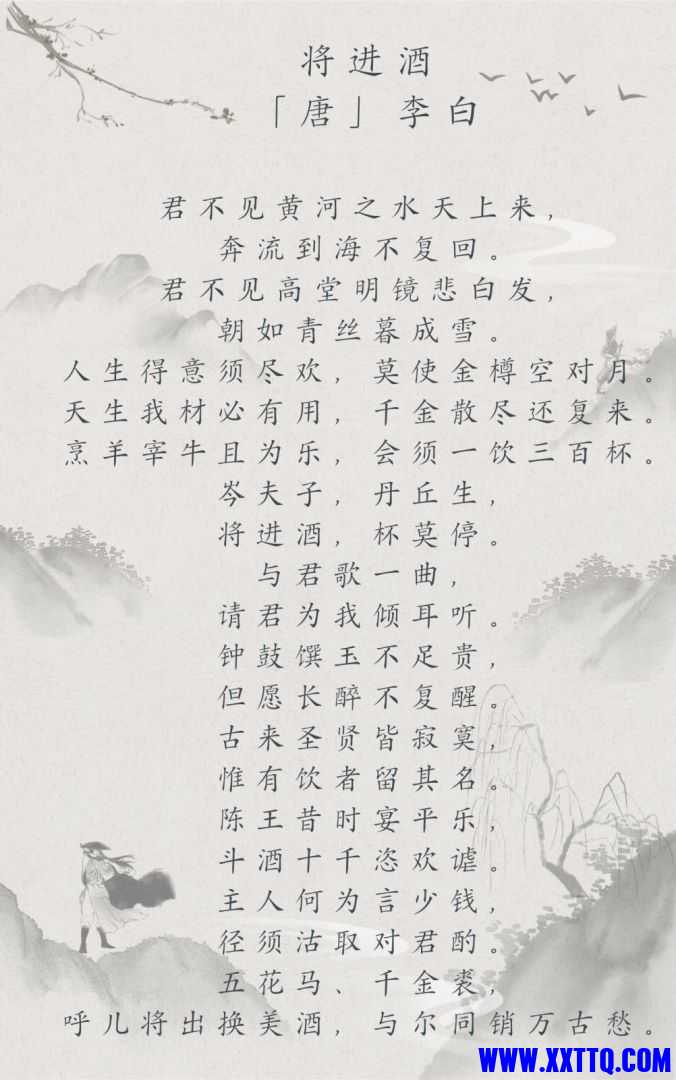 将进酒
「唐」李白
君不见黄河之水天上来，
奔流到海不复回。
君不见高堂明镜悲白发，
朝如青丝暮成雪。
人生得意须尽欢，莫使金樽空对月。
天生我材必有用，千金散尽还复来。
烹羊宰牛且为乐，会须一饮三百杯。
岑夫子，丹丘生，
将进酒，杯莫停。
与君歌一曲，
请君为我倾耳听。
钟鼓馔玉不足贵，
但愿长醉不复醒。
古来圣贤皆寂寞，
惟有饮者留其名。
陈王昔时宴平乐，
斗酒十千恣欢谑。
主人何为言少钱，
径须沽取对君酌。
五花马、千金裘，
呼儿将出换美酒，与尔同销万古愁。
WWW.XXTTQ.COM